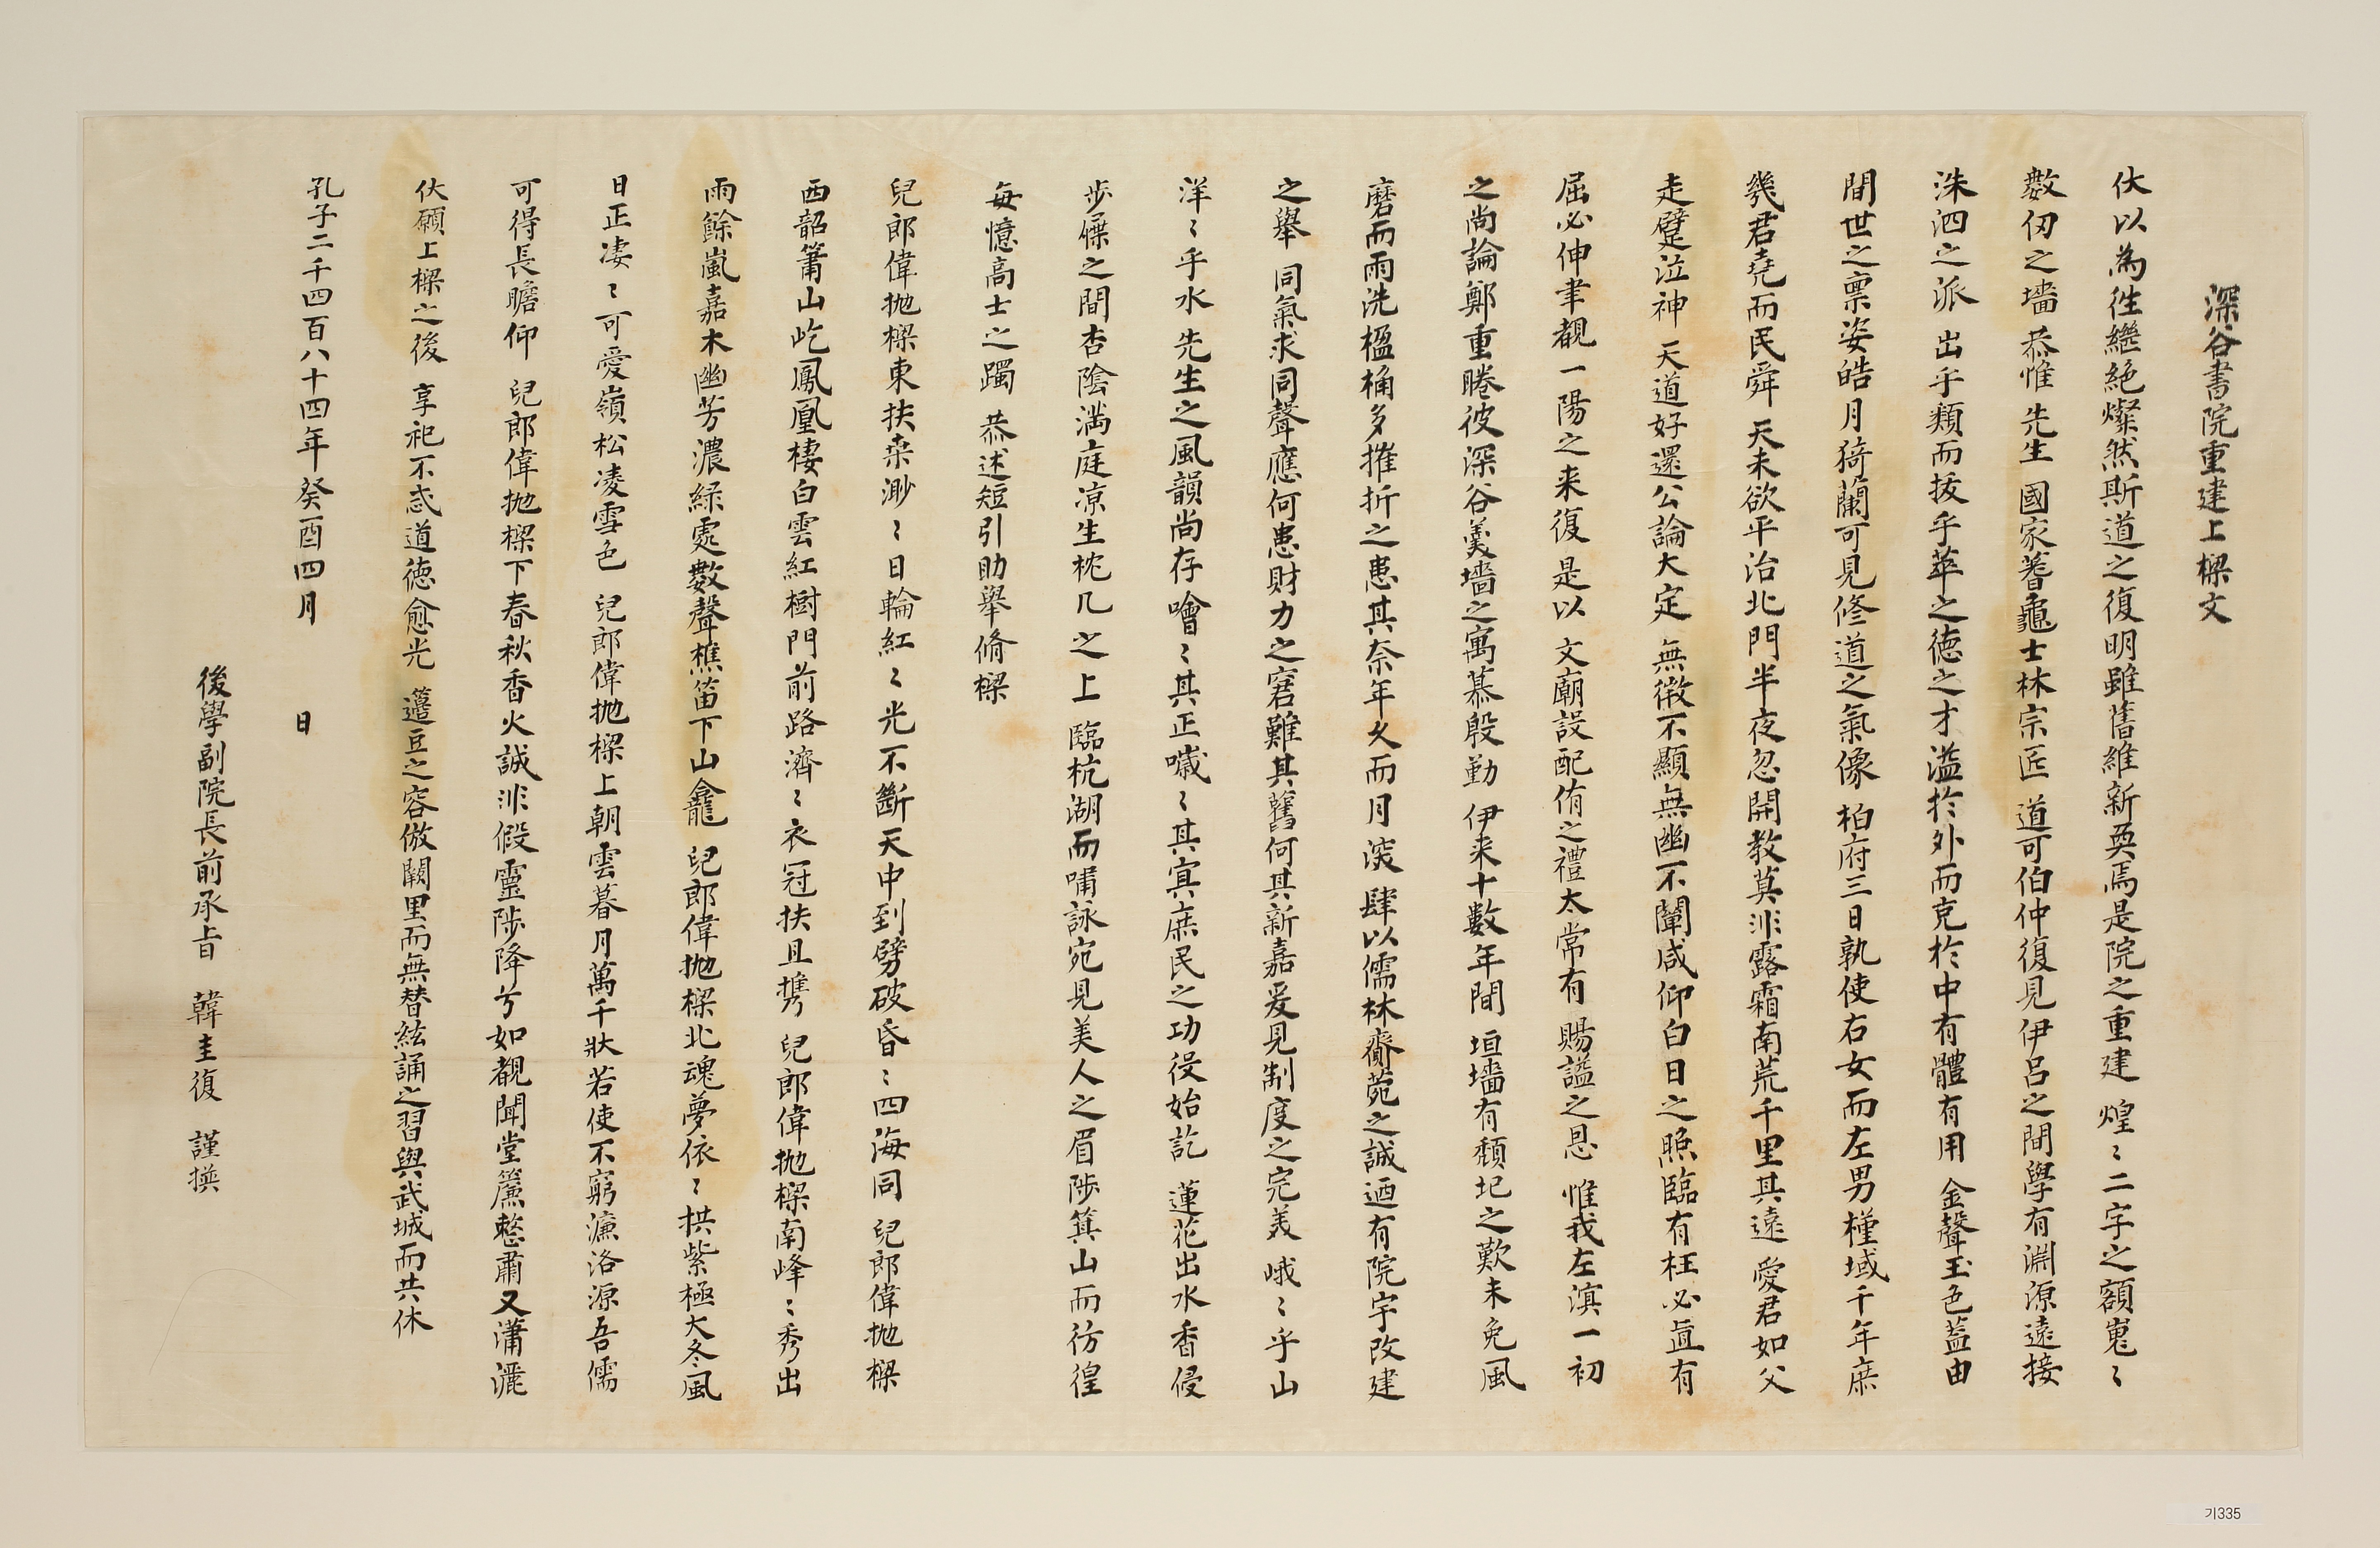 深谷書院重建上樑文
伏以為徃繼絶燦然斯道之復明雖舊維新奐焉是院之重建 煌〻二字之額嵬〻
數仞之墻 恭惟 先生 國家蓍龜士林宗匠 道可伯仲復見伊呂之間學有淵源遠接
洙泗之派 出乎類而拔乎萃之徳之才溢於外而克於中有體有用 金聲玉色盖由
間世之禀姿皓月猗蘭可見修道之氣像 柏府三日孰使右女而左男槿域千年庶
幾君堯而民舜 天未欲平治北門半夜忽開教莫非露霜南荒千里其遠 愛君如父
走躄泣神 天道好還公論大定 無微不顯無幽不闡咸仰白日之照臨有枉必直有
屈必伸聿覩一陽之来復 是以 文廟設配侑之禮太常有 賜諡之恩 惟我左滇一初
之尚論鄭重睠彼深谷羹墻之寓慕殷勤 伊来十數年間 垣墻有頽圮之歎未免風
磨而雨洗楹桷多摧折之患其奈年久而月深 肆以儒林齋菀之誠迺有院宇改建
之舉 同氣求同聲應何患財力之窘難其舊何其新嘉爰見制度之完美 峨〻乎山
洋〻乎水 先生之風韻尚存噲〻其正噦〻其㝠庶民之功役始訖 蓮花出水香侵
歩屧之間杏陰满庭凉生枕几之上 臨杭湖而嘯詠宛見美人之眉陟箕山而彷徨
每憶高士之躅 恭述短引助舉脩樑
兒郎偉抛樑東扶桒渺〻日輪紅〻光不斷天中到劈破昏〻四海同 兒郎偉抛樑
西韶箾山屹鳳凰棲白雲紅樹門前路濟〻衣冠扶且携 兒郎偉抛樑南峰〻秀出
雨餘嵐嘉木幽芳濃緑處數聲樵笛下山龕 兒郎偉抛樑北魂夢依〻拱紫極大冬風
日正凄〻可愛嶺松凌雪色 兒郎偉抛樑上朝雲暮月萬千狀若使不窮濂洛源吾儒
可得長瞻仰 兒郎偉抛樑下春秋香火誠非假靈陟降兮如覩聞堂簾憗肅又瀟灑
伏願上樑之後 享祀不忒道徳愈光 籩豆之容倣闕里而無替絃誦之習與武城而共休
孔子二千四百八十四年癸酉四月 日
後學副院長前承旨 韓圭復 謹撰
기335